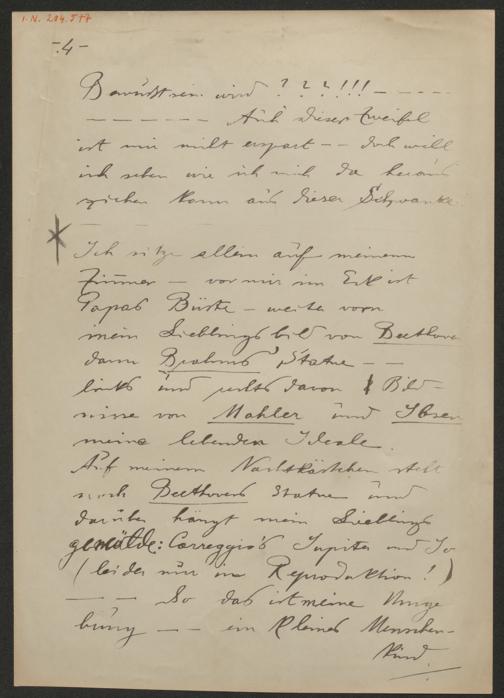 I. N. 214.577
-4-
Bewußtsein wird ???!!! - - - -
- - - - - - Auch dieser Zweifel
ist mir nicht erspart - - doch will
ich sehen wie ich mich da heraus
ziehen kann aus dieser
Ich sitze allein auf meinem
Zimmer - vor mir im Eck ist
Papas Büste - weiter vorn
mein Lieblingsbild von Beethoven
dann Brahms' Statue - -
links und rechts davon Bild-
nisse von Mahler und Ibsen
meine lebenden Ideale.
Auf meinem Nachtkästchen steht
noch Beethovens Statue und
darüber hängt mein Lieblings
gemälde: Correggio's Jupiter und Io
(leider nur in Reproduktion!)
- - - So das ist meine Umge
bung - - ein kleines Menschen-
kind.